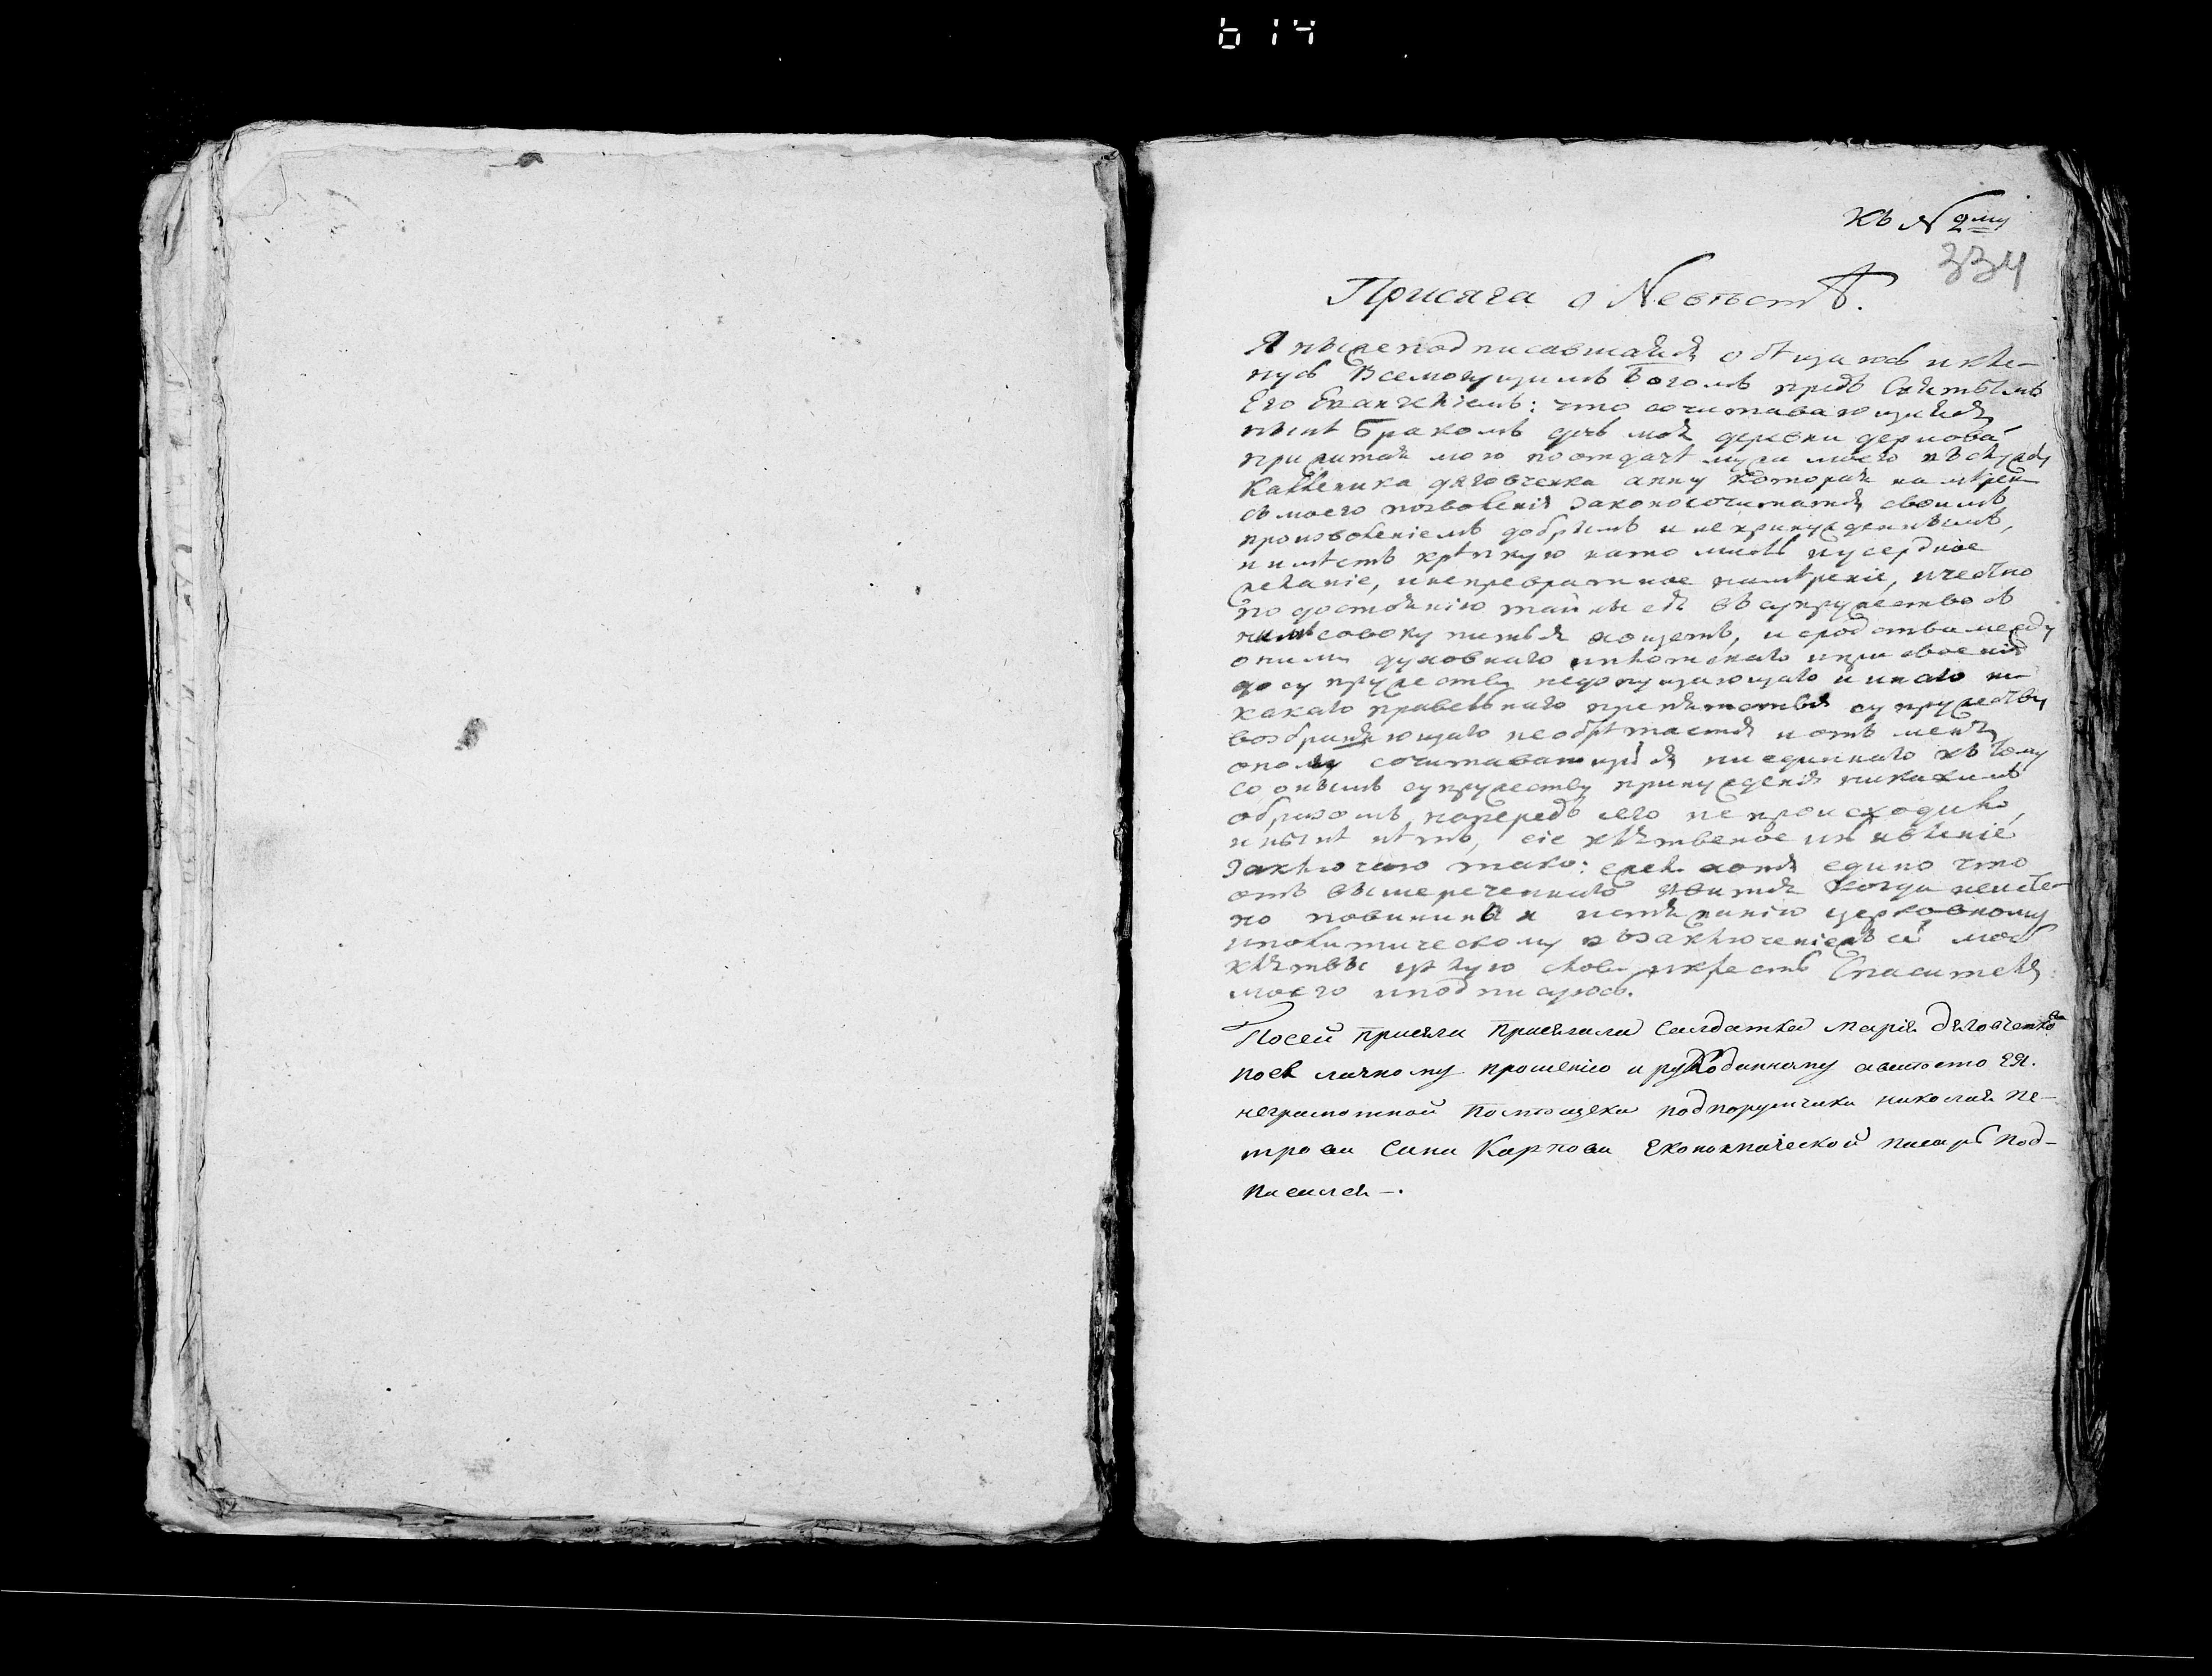 614
Къ № 2му
334
Присяга о Невѣстѣ.
Я нижеподписавшаяся обѣщаюсь и кля-
нусь Всемогущимъ Богомъ предъ Святымъ
Его Евангеліемъ: что сочитавающаяся
нынѣ Бракомъ дочь моя деревни
по отдачѣ мужа моего въ службу
анну которая намѣрен
съ моего позволенія законосочитатся своимъ
произволеніемъ добрымъ и непринужденнымъ,
и имѣетъ крѣпкую на то мысль и усердное
желаніе, и непревратное намѣреніе, и честно
по достоянію тайны сея въ супружество съ
нимъ совокупитися хощетъ, и сродства между
оними духовнаго и плотскаго и присвоенія
до супружества недопущающаго и инаго ни-
какаго правелнаго препятствія супружеству
возбраняющаго необрѣтается и отъ меня
оному сочитавающейся ниединаго къ тому
со онымъ супружеству принужденія никакимъ
образомъ, напередъ сего не происходило,
и нынѣ нѣтъ, сіе клятвеное изявленіе
заключаю тако: ежели хотя едино что
отъ вышереченнаго явится когда неисте-
но повинна я истязанію церковному
и политическому въ заключеніежъ сей моей
клятвы цѣлую слова и крестъ Спасителя
моего и подписуюсь.
По сей присяги присягала Салдатка Марія Дяговченкова
по ея личному прошенію и рукоданному а вместо ея
неграмотной Помѣщека подпорутчика николая Пе-
трова Сина Карпова Економической писарь под-
писался —.